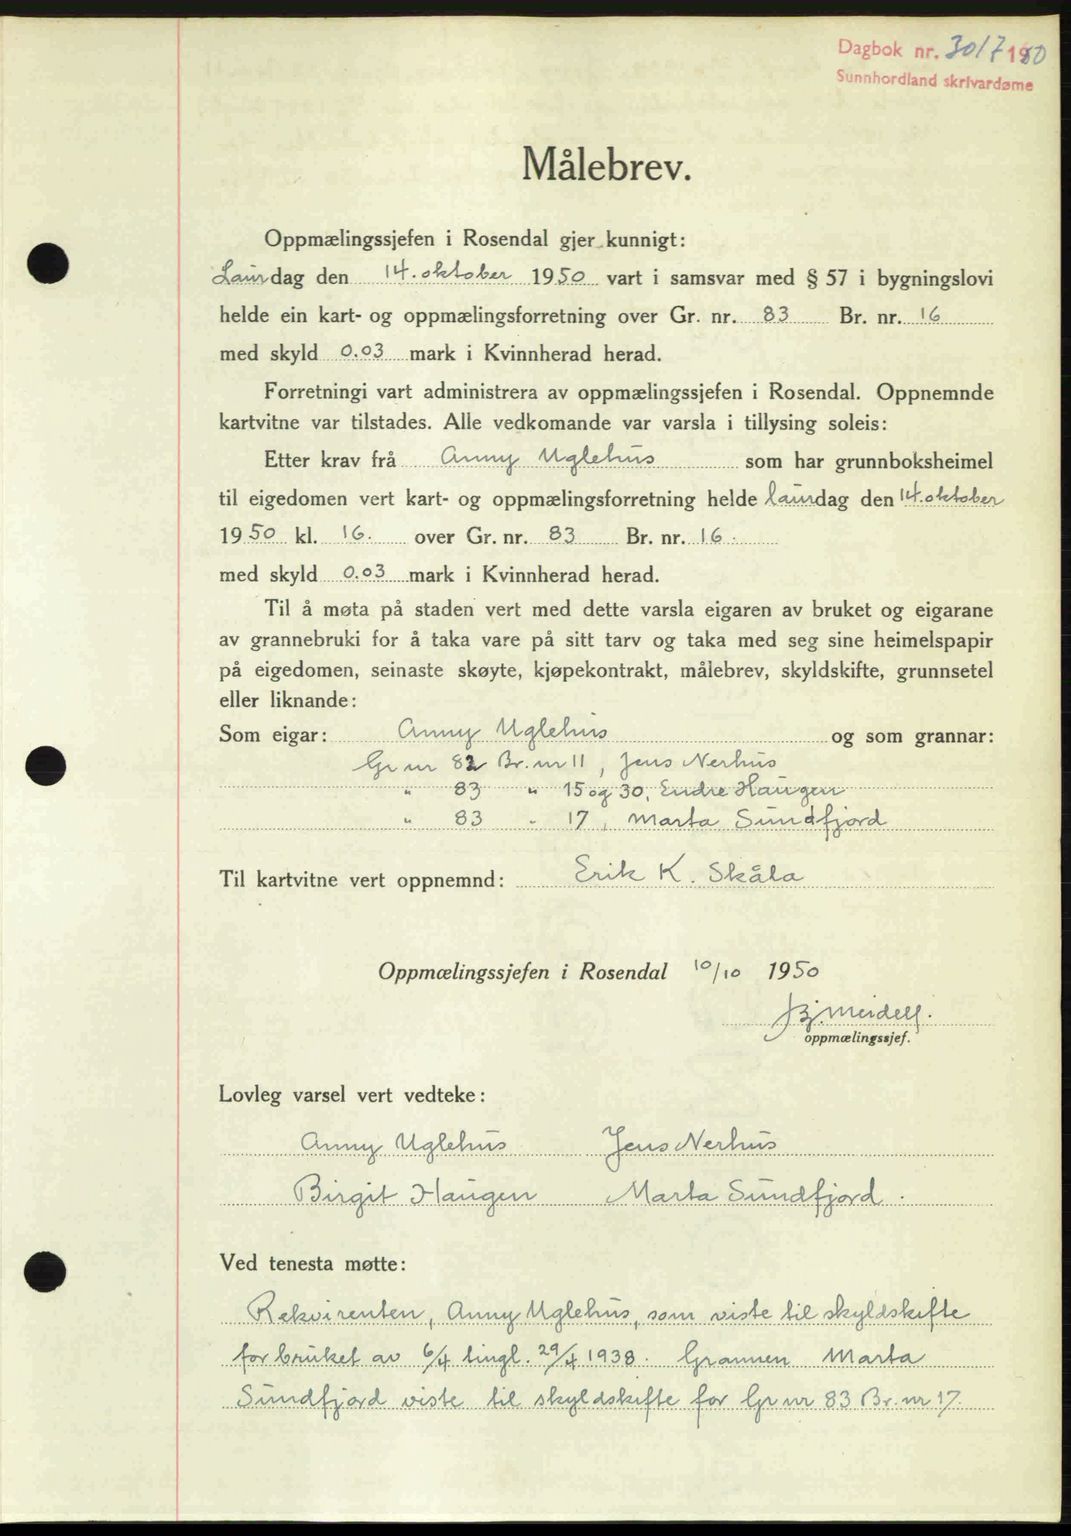 Dagbok nr. 3017 1950
Sunnhordland skrivardøme
Målebrev.
Oppmælingssjefen i Rosendal gjer kunnigt:
Laurdag den 14. oktober 1950 vart i samsvar med § 57 i bygningslovi
helde ein kart- og oppmælingsforretning over Gr. nr. 83 Br. nr. 16
med skyld 0.03 mark i Kvinnherad herad.
Forretningi vart administrera av oppmælingssjefen i Rosendal. Oppnemnde
kartvitne var tilstades. Alle vedkomande var varsla i tillysing soleis:
Etter krav frå Anny Uglehus som har grunnboksheimel
til eigedomen vert kart- og oppmælingsforretning helde laurdag den 14. oktober
1950 kl. 16. over Gr. nr. 83 Br. nr. 16.
med skyld 0.03 mark i Kvinnherad herad.
Til å møta på staden vert med dette varsla eigaren av bruket og eigarane
av grannebruki for å taka vare på sitt tarv og taka med seg sine heimelspapir
på eigedomen, seinaste skøyte, kjøpekontrakt, målebrev, skyldskifte, grunnsetel
eller liknande:
Som eigar: Anny Uglehus og som grannar:
Gr nr 82 Br. nr 11, Jens Nerhus
" 83 " 15 og 30, Endre Haugen
" 83 " 17, Marta Sundfjord
Til kartvitne vert oppnemnd: Erik K. Skåla
Oppmælingssjefen i Rosendal 10/10 1950
Bj. Meidell.
oppmælingssjef.
Lovleg varsel vert vedteke:
Anny Uglehus Jens Nerhus
Birgit Haugen Marta Sundfjord.
Ved tenesta møtte:
Rekvirenten, Anny Uglehus, som viste til skyldskifte
for bruket av 6/4 tingl. 29/4 1938. Grannen Marta
Sundfjord viste til skyldskifte for Gr nr 83 Br. nr 17.